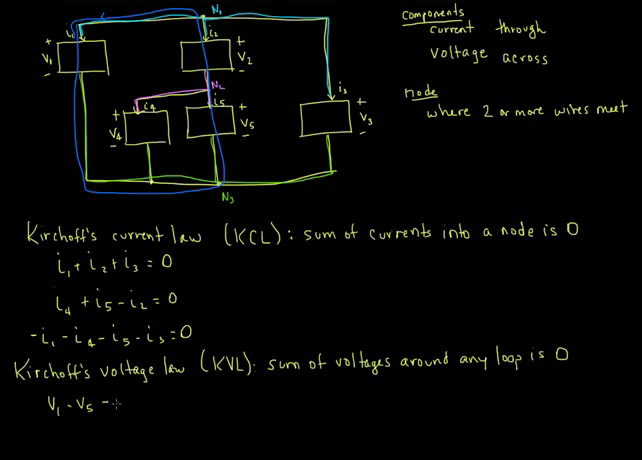 N₁
i₁
i₂
+ V₁ -
+ V₂ -
N₂
i₃
i₄
i₅
+ V₄ -
+ V₅ -
+ V₃ -
N₃
Components
current through
voltage across
node
where 2 or more wires meet
Kirchoff's current law (KCL): sum of currents into a node is 0
i₁ + i₂ + i₃ = 0
i₄ + i₅ - i₂ = 0
-i₁ - i₄ - i₅ - i₃ = 0
Kirchoff's voltage law (KVL): sum of voltages around any loop is 0
V₁ - V₅ -